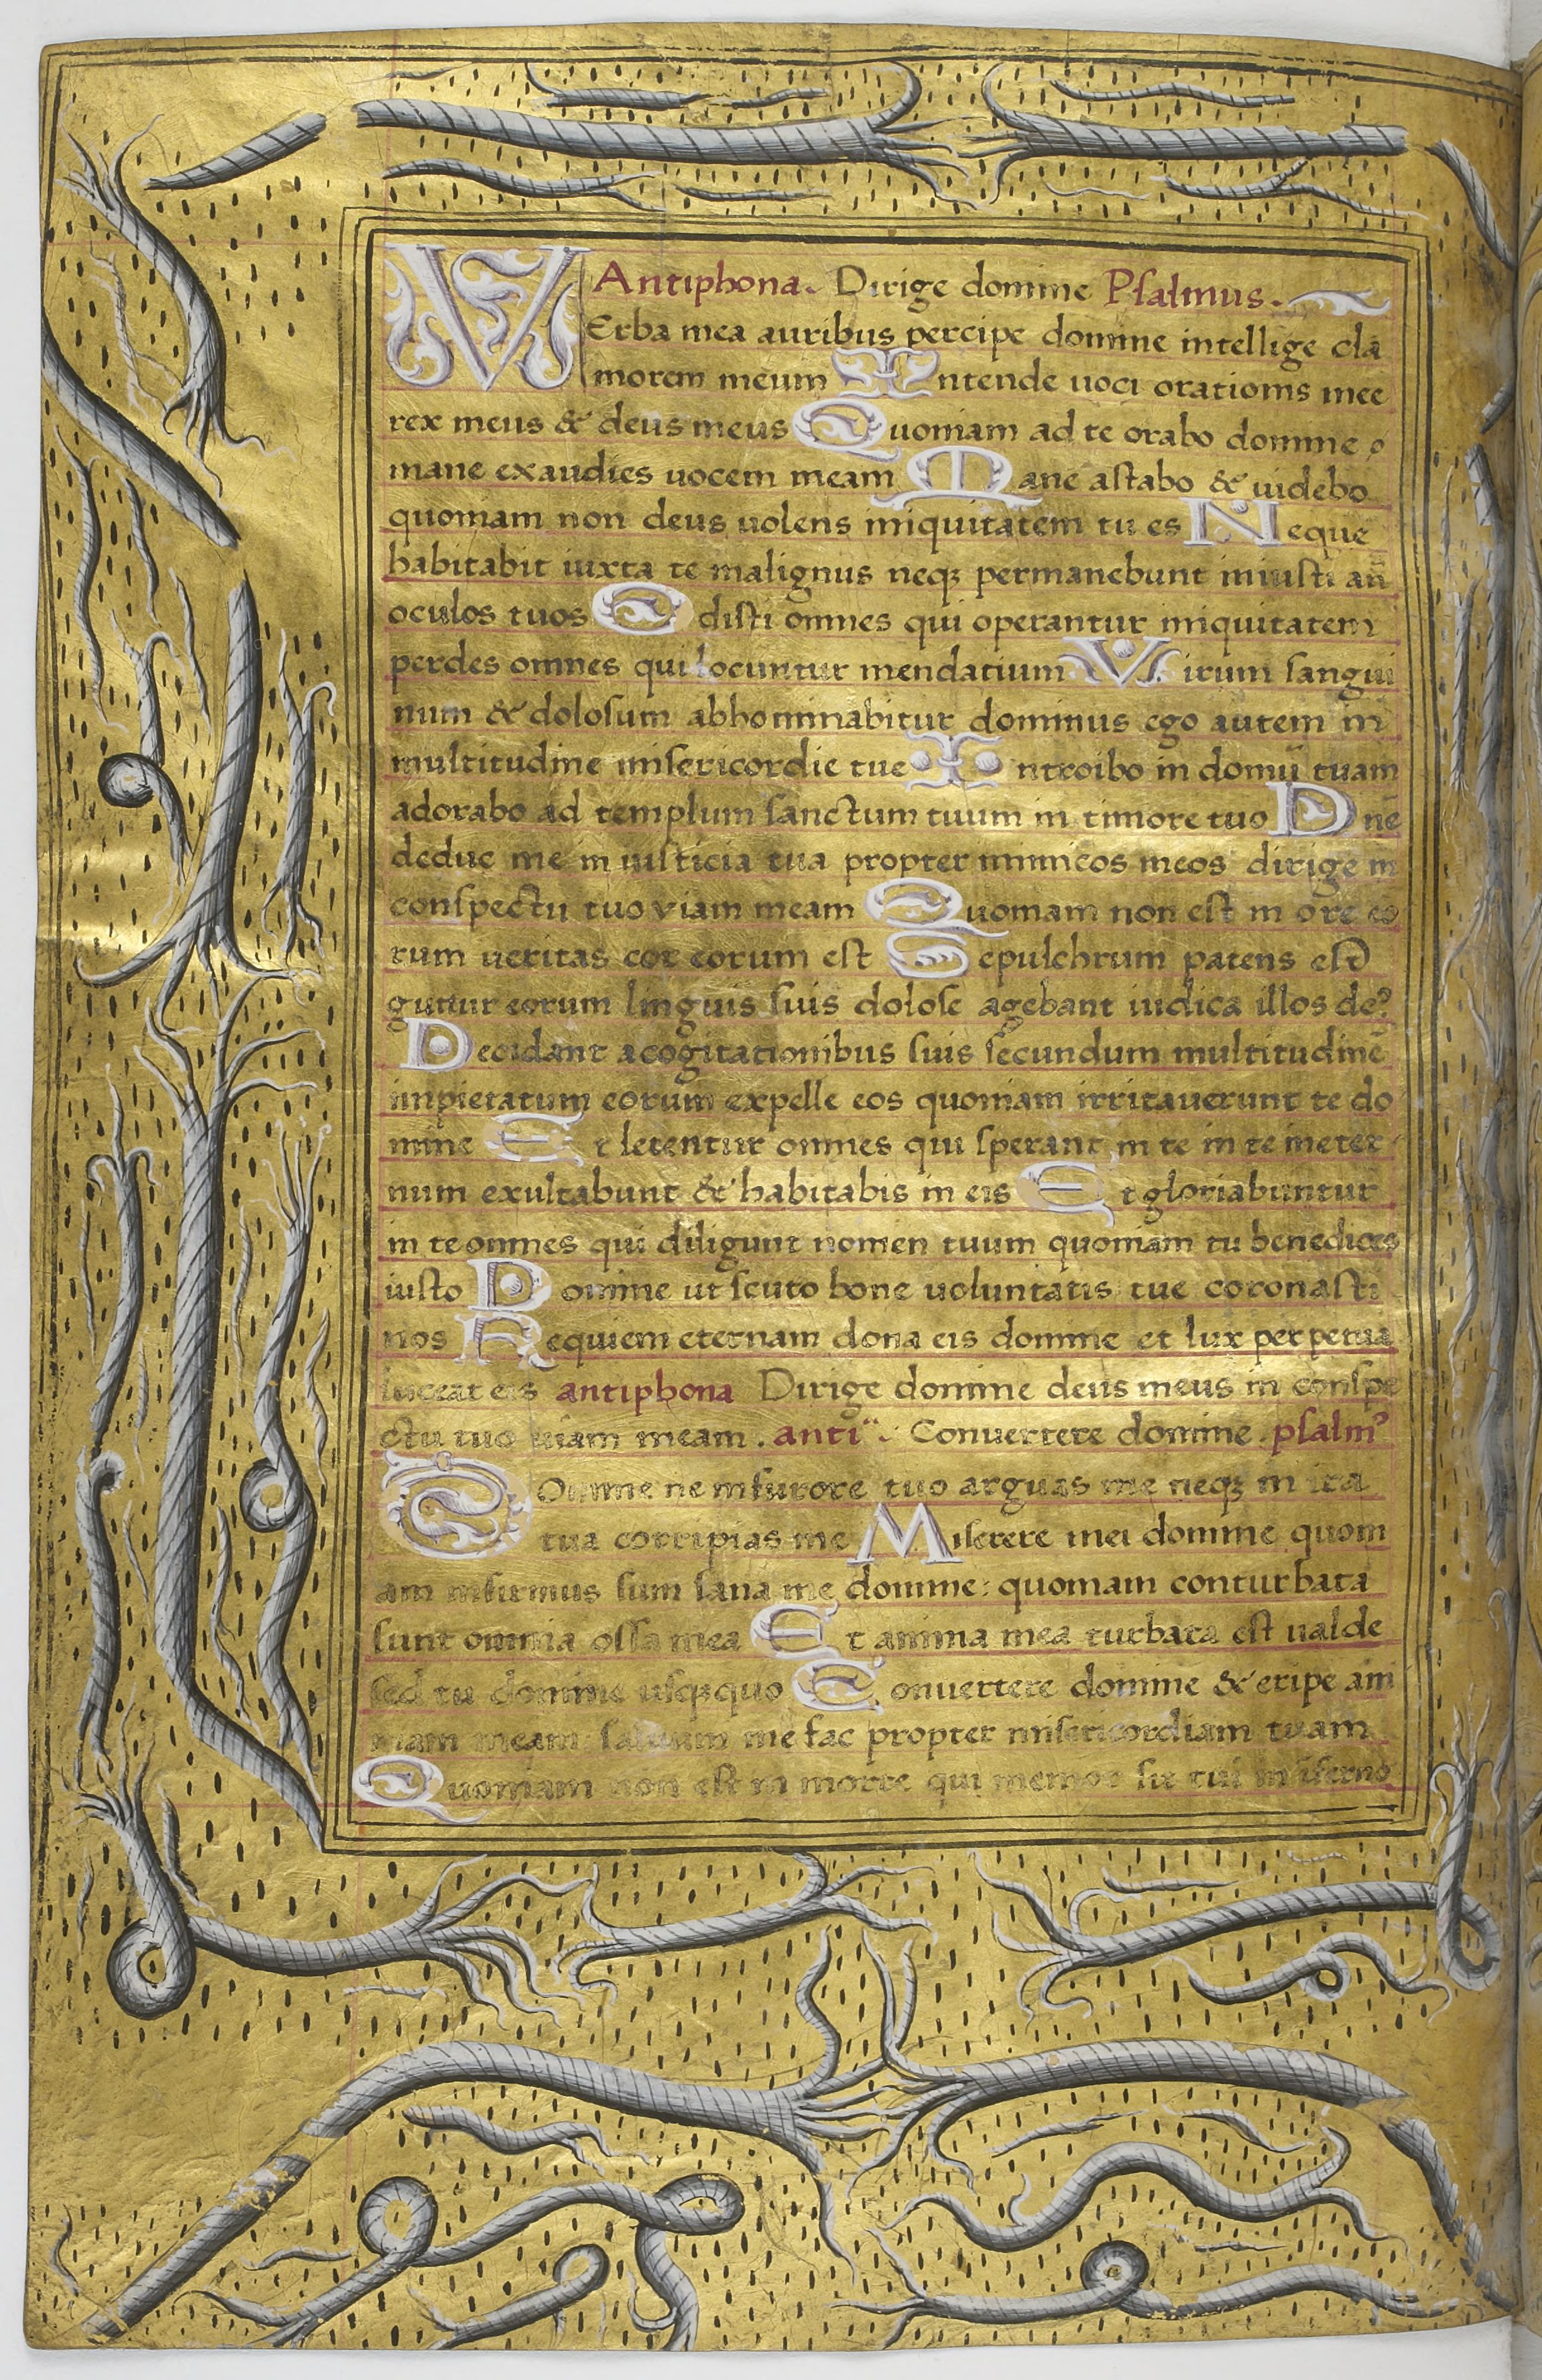 Antiphona. Dirige domine Psalmus.
VErba mea auribus percipe domine intellige cla
morem meum Intende uoci orationis mee
rex meus & deus meus Quoniam ad te orabo domine
mane exaudies uocem meam Mane astabo & uidebo
quoniam non deus uolens iniquitatem tu es Neque
habitabit iuxta te malignus neqz permanebunt iniusti añ
oculos tuos Odisti omnes qui operantur iniquitatem
perdes omnes qui locuntur mendatium Virum sangui
num & dolosum abhominabitur dominus ego autem in
multitudine misericordie tue Introibo in domū tuam
adorabo ad templum sanctum tuum in timore tuo Dnē
deduc me in iusticia tua propter inimicos meos dirige in
conspectu tuo viam meam Quoniam non est in ore eo
rum ueritas cor eorum est Sepulchrum patens est
guttur eorum linguis suis dolose agebant iudica illos de⁹
Decidant a cogitationibus suis secundum multitudinē
impietatum eorum expelle eos quoniam irritauerunt te do
mine Et letentur omnes qui sperant in te in te ineter
num exultabunt & habitabis in eis Et gloriabuntur
in te omnes qui diligunt nomen tuum quoniam tu benedices
iusto Domine ut scuto bone uoluntatis tue coronasti
nos Requiem eternam dona eis domine et lux perpetua
luceat eis antiphona Dirige domine deus meus in conspe
ctu tuo uiam meam. anti". Conuertere domine. psalm⁹
DOmine ne in furore tuo arguas me neqz in ira
tua corripias me Miserere mei domine quoni
am infirmus sum sana me domine: quoniam conturbata
sunt omnia ossa mea Et anima mea turbata est ualde
sed tu domine usqzquo Conuertere domine & eripe ani
mam meam saluum me fac propter misericordiam tuam
Quoniam non est in morte qui memor sit tui in iferno